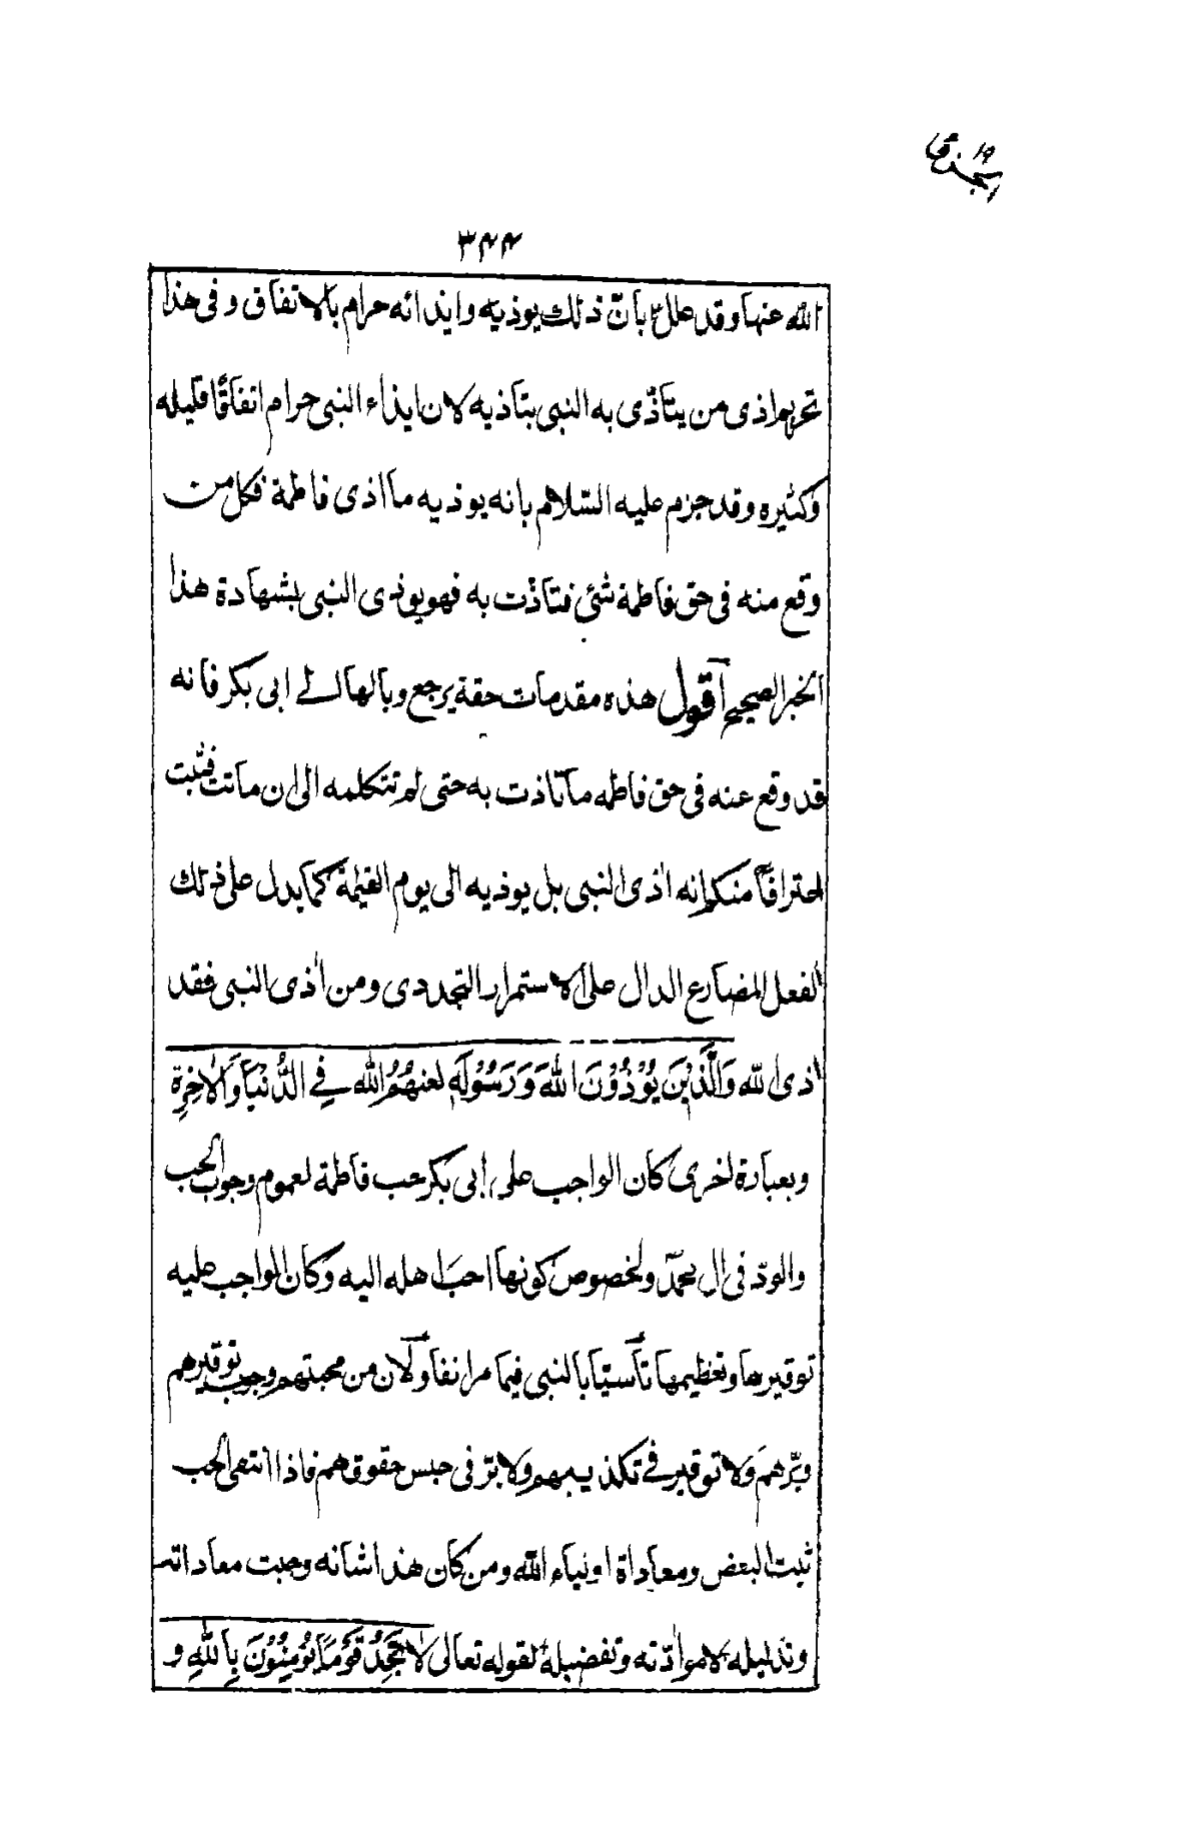 ٣٤٤
الله عنها وقد علل بان ذلك يوذيه وايذائه حرام بالاتفاق وفى هذا
تحريم اذى من يتأذّى به النبى بتأذيه لان ايذاء النبى حرام اتفاقًا قليله
وكثيره وقد جزم عليه السّلام بانه يوذيه ما اذى فاطمة فكل من
وقع منه فى حق فاطمة شئ فتأذت به فهو يوذى النبى بشهادة هذا
الخبر الصحيح اقول هذه مقدمات حقة يرجع وبالها الے ابى بكر فانه
قد وقع عنه فى حق فاطمه ما تاذت به حتى لم تتكلمه الى ان ماتت فثبت
اعترافًا منكم انه اذى النبى بل يوذيه الى يوم القيٰمة كما يدل على ذلك
الفعل المضارع الدال على الاستمرار التجددى ومن اذى النبى فقد
اذى الله وَالَّذِيْنَ يُؤْذُوْنَ اللهَ وَرَسُوْلَهٗ لعنهُمُ الله فِے الدُّنْيَا وَالْاٰخِرَةِ
وبعبارة اخرى كان الواجب على ابى بكر حب فاطمة لعموم وجوب الحب
والودّ فى ال محمّد ولخصوص كونها احبَ اهله اليه وكان الواجب عليه
توقيرها وتعظيمها تأسيّا بالنبى فيما مر انفا ولان من محبتهم وجوب توقيرهم
وبرّهم ولا توقير فے تكذيبهم ولا برّ فى حبس حقوقهم فاذا انتفى الحب
ثبت البغض ومعاداة اولياء الله ومن كان هذا شانه وجبت معاداته
وتذليله لا موادّته وتفضيله لقوله تعالى لَا تَجِدُ قَوْمًا يُؤْمِنُوْنَ بِاللهِ وَ